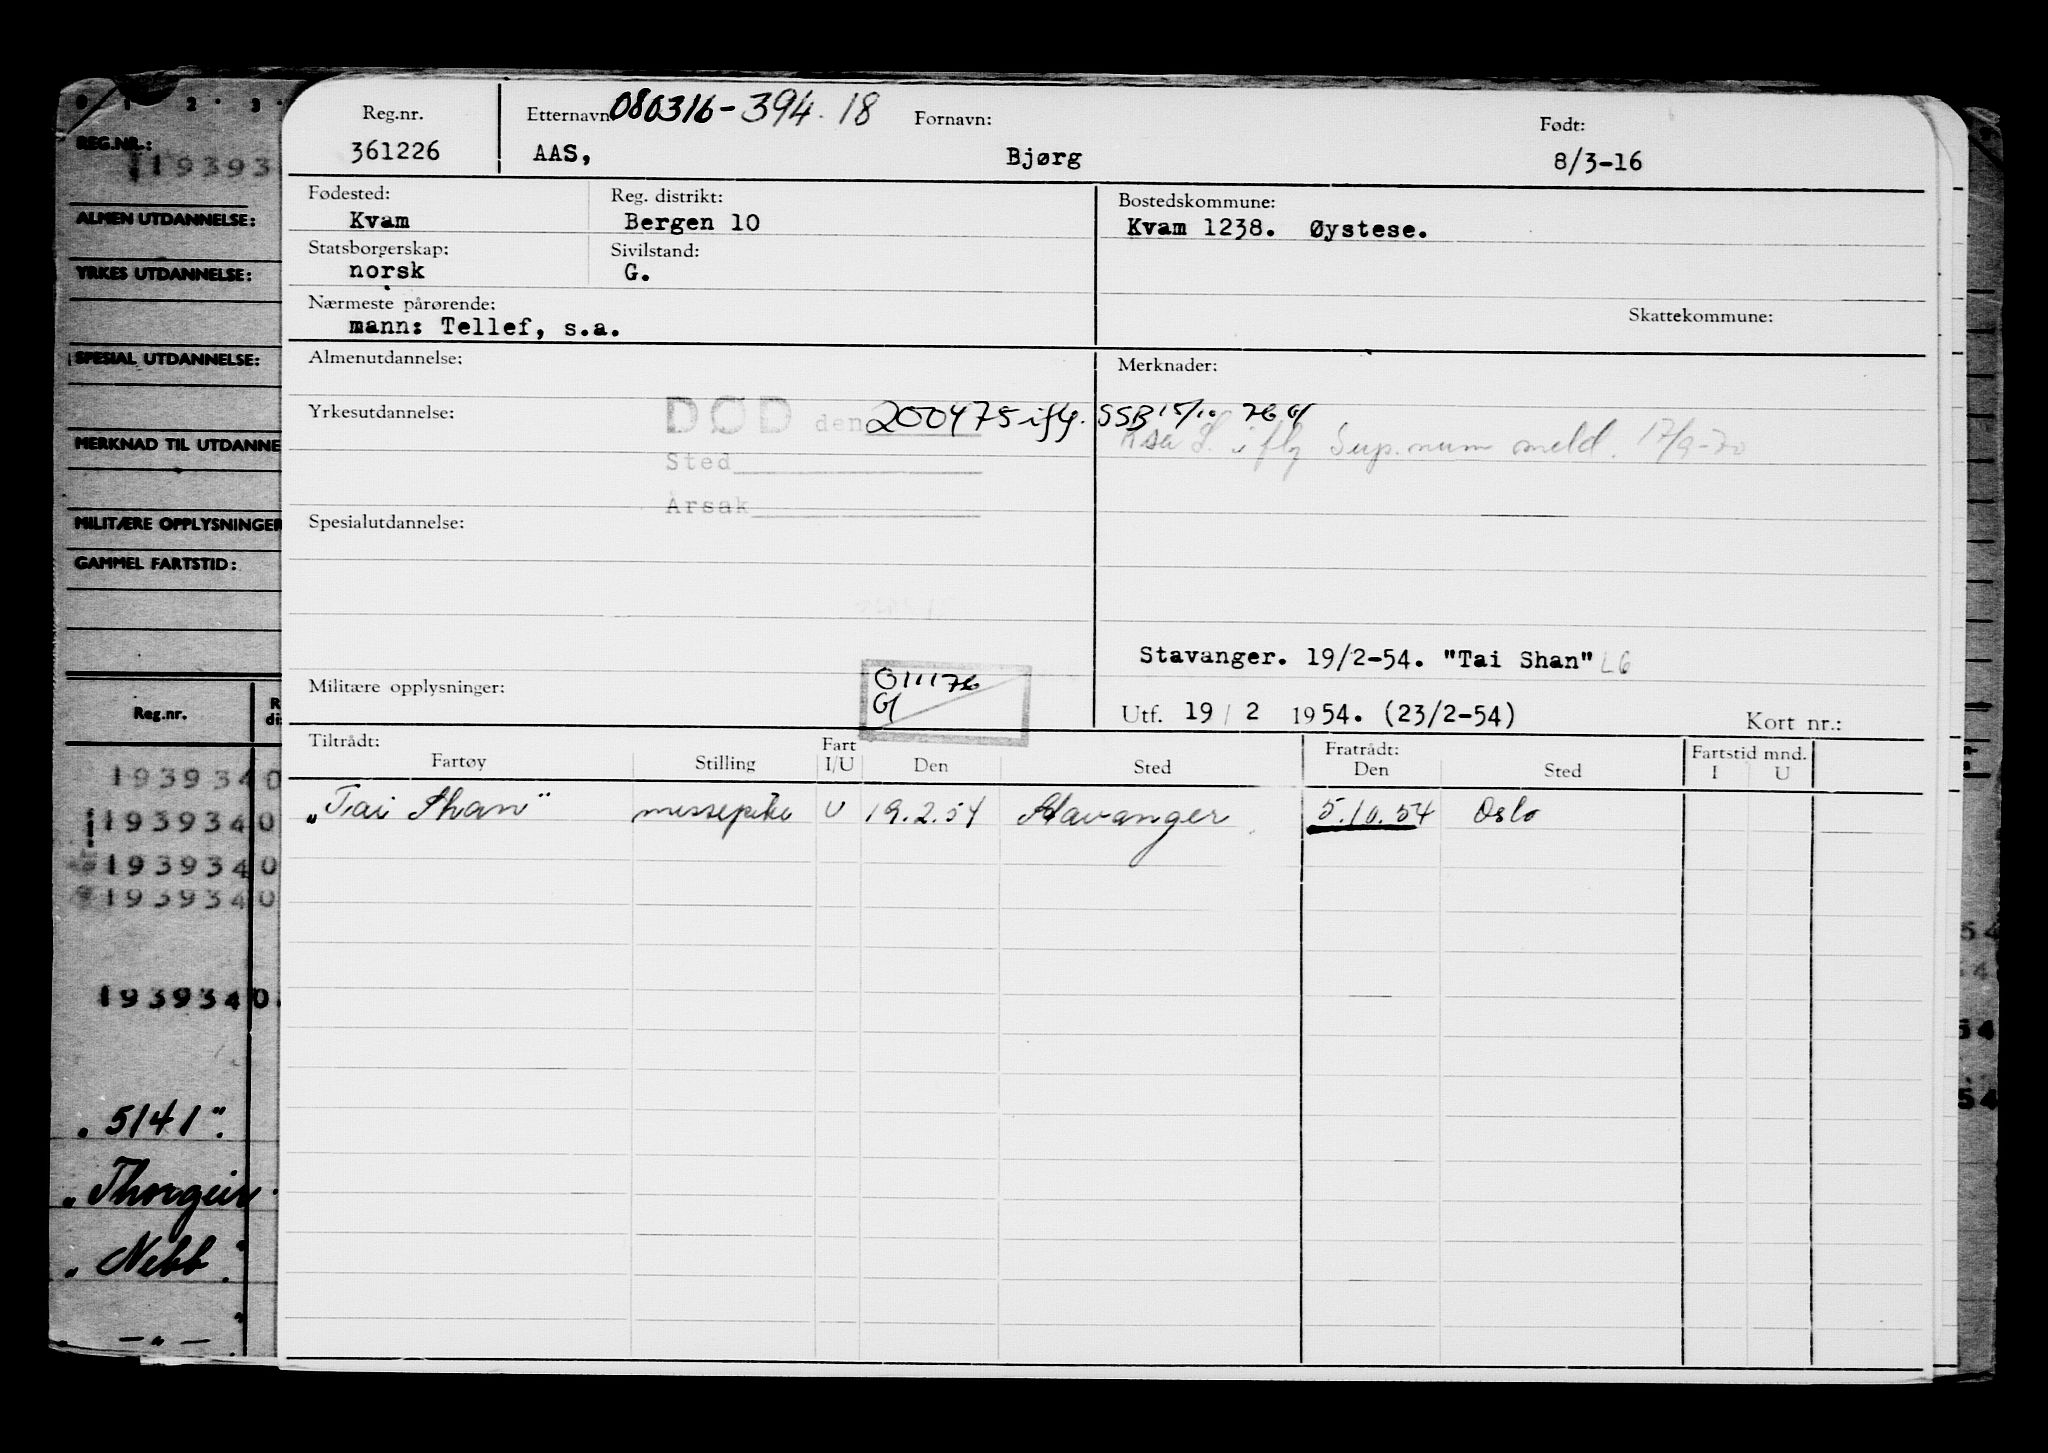 Reg.nr. Etternavn 080316-394.18 Fornavn: Født:
361226 AAS, Bjørg 8/3-16
Fødested: Reg. distrikt: Bostedskommune:
Kvam Bergen 10 Kvam 1238. Øystese.
Statsborgerskap: Sivilstand:
norsk G.
Nærmeste pårørende: Skattekommune:
mann: Tellef, s.a.
Almenutdannelse: Merknader:
Yrkesutdannelse: DØD den 200475 iflg. SSB 15/10 76 G
S. iflg Sup.num meld. 17/9-70
Sted
Årsak
Spesialutdannelse:
Stavanger. 19/2-54. "Tai Shan" LG
Militære opplysninger: 011176
G
Utf. 19/2 1954. (23/2-54) Kort nr.:
Tiltrådt: Fart Fratrådt: Fartstid mnd.
Fartøy Stilling I/U Den Sted Den Sted I U
„Tai Shan" messepike U 19.2.54 Stavanger 5.10.54 Oslo
0 1 2 3
REG.NR.:
19393
ALMEN UTDANNELSE:
YRKES UTDANNELSE:
SPESIAL UTDANNELSE:
MERKNAD TIL UTDANNE
MILITÆRE OPPLYSNINGER
GAMMEL FARTSTID:
Reg.nr. R
di
1939340
1939340
1939340
1939340
1939340
„5141".
„Thorgeir
„Nebb."
—"—
54
54
54
54